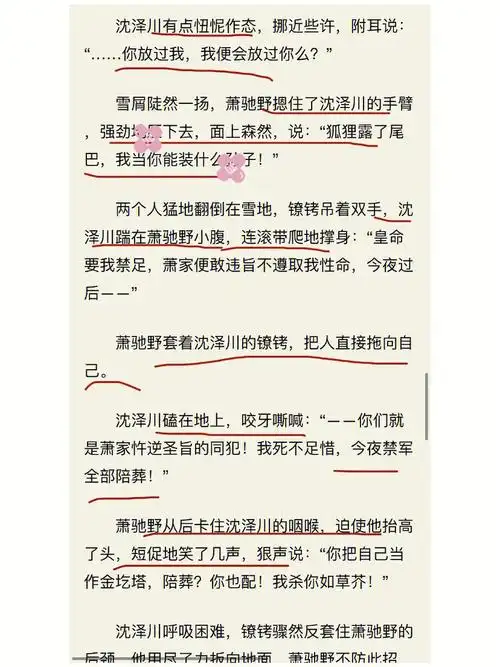 沈泽川有点忸怩作态，挪近些许，附耳说：
“……你放过我，我便会放过你么？”
雪屑陡然一扬，萧驰野摁住了沈泽川的手臂
，强劲地压下去，面上森然，说：“狐狸露了尾
巴，我当你能装什么子！”
两个人猛地翻倒在雪地，镣铐吊着双手，沈
泽川踹在萧驰野小腹，连滚带爬地撑身：“皇命
要我禁足，萧家便敢违旨不遵取我性命，今夜过
后——”
萧驰野套着沈泽川的镣铐，把人直接拖向自
己。
沈泽川磕在地上，咬牙嘶喊：“——你们就
是萧家忤逆圣旨的同犯！我死不足惜，今夜禁军
全部陪葬！”
萧驰野从后卡住沈泽川的咽喉，迫使他抬高
了头，短促地笑了几声，狠声说：“你把自己当
作金圪塔，陪葬？你也配！我杀你如草芥！”
沈泽川呼吸困难，镣铐骤然反套住萧驰野的
后颈，他用尽了力扳向地面，萧驰野不防此招